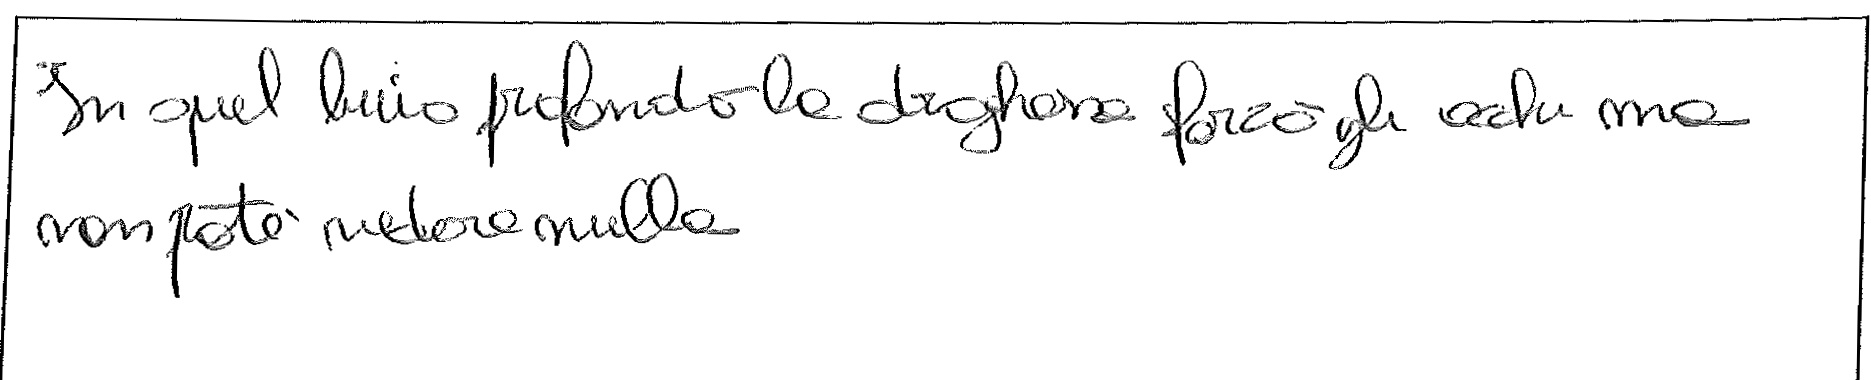 In quel buio profondo la droghera forzò gli occhi ma
non poté vedere nulla